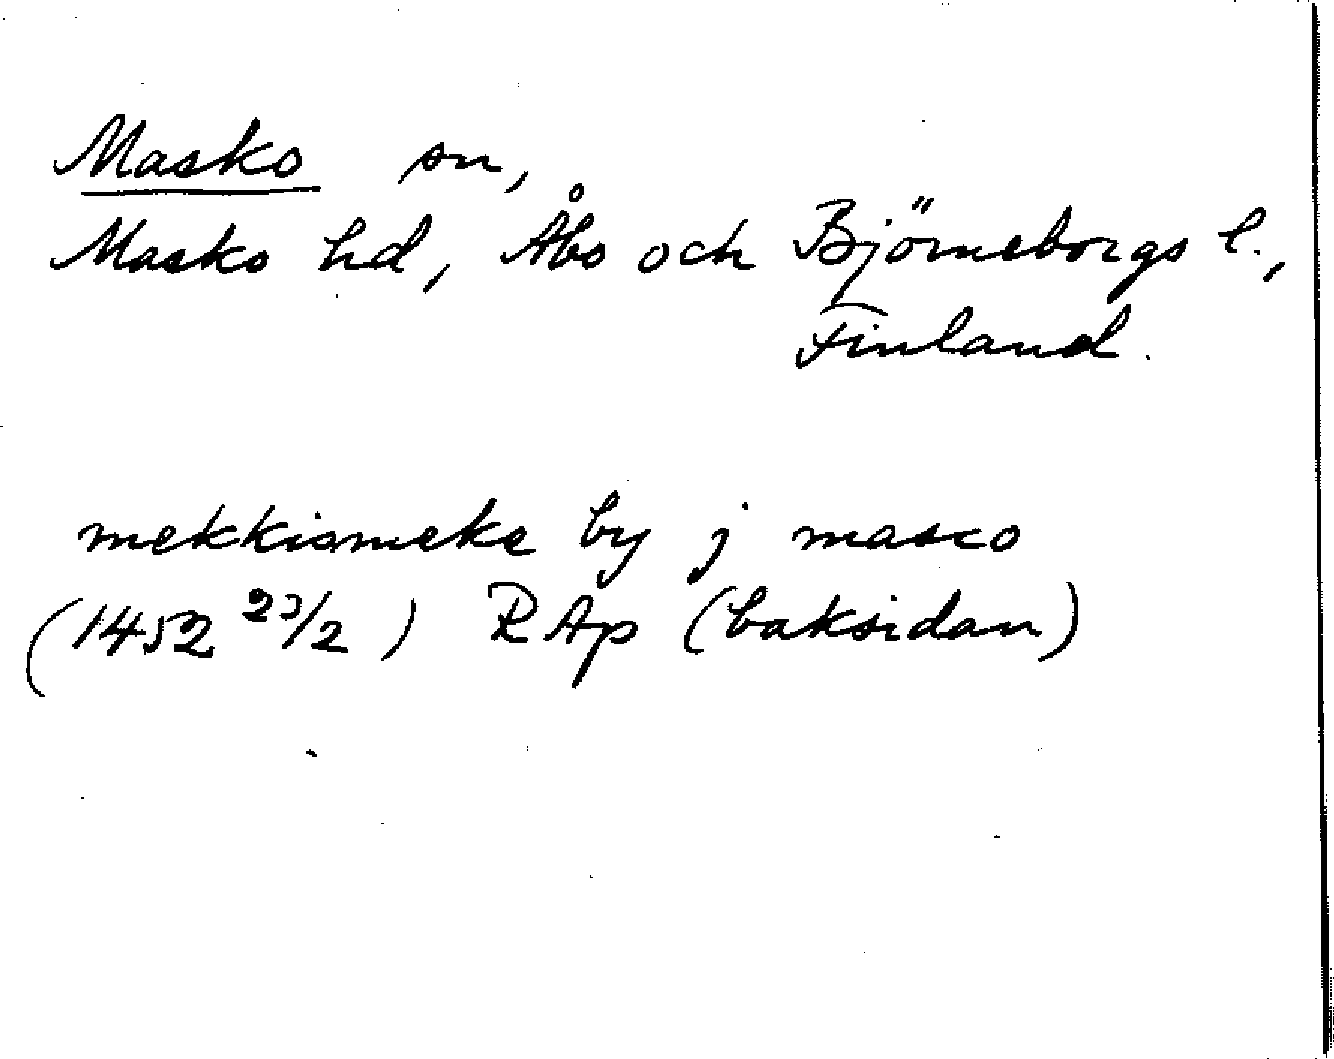 Masko sn,
Masko hd, Åbo och Björneborgs l.,
Finland.
mekkismeke by j masco
(1452 23/2) RAp (baksidan)